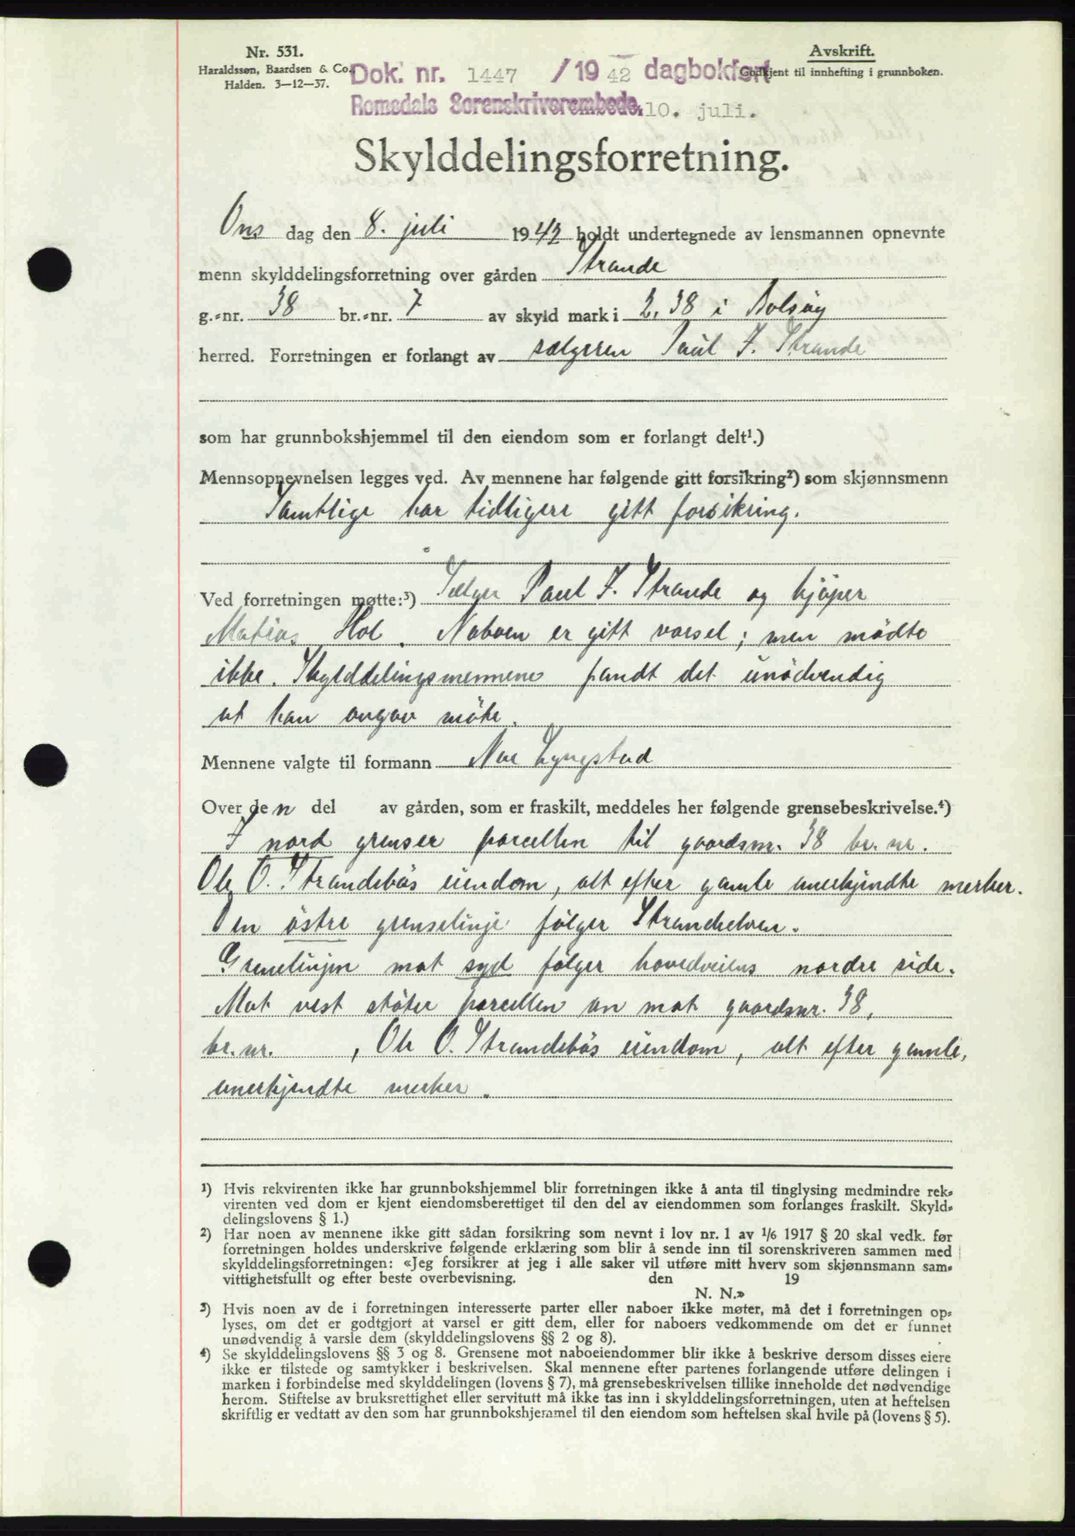 Nr. 531.
Haraldssøn, Baardsen & Co.
Halden. 3-12-37.
Avskrift.
Godkjent til innhefting i grunnboken.
Dok. nr. 1447 /19 42 dagbokført
Romsdals Sorenskriverembede, 10. juli.
Skylddelingsforretning.
Ons dag den 8. juli 1942 holdt undertegnede av lensmannen opnevnte
menn skylddelingsforretning over gården Strande
g.-nr. 38 br.-nr. 7 av skyld mark i 2,38 i Bolsøy
herred. Forretningen er forlangt av sælgeren Paul J. Strande
som har grunnbokshjemmel til den eiendom som er forlangt delt¹.)
Mennsopnevnelsen legges ved. Av mennene har følgende gitt forsikring²) som skjønnsmenn
Samtlige har tidligere gitt forsikring.
Ved forretningen møtte:³) Sælger Paul J. Strande og kjøper
Matias Hol. Naboen er gitt varsel; men mødte
ikke. Skylddelingsmennene fandt det unødvendig
at han avgav møte.
Mennene valgte til formann Lyngstad
Over den del av gården, som er fraskilt, meddeles her følgende grensebeskrivelse.⁴)
I nord grenser parcellen til gaardsnr. 38 br. nr.
Ole O. Strandebøs eiendom, alt efter gamle anerkjendte merker.
Den østre grenselinje følger Strandeelven.
Grenselinjen mot syd følger hovedveiens nordre side.
Mot vest støter parcellen an mot gaardsnr. 38,
br. nr. , Ole O. Strandebøs eiendom, alt efter gamle,
anerkjendte merker.
¹) Hvis rekvirenten ikke har grunnbokshjemmel blir forretningen ikke å anta til tinglysing medmindre rek-
virenten ved dom er kjent eiendomsberettiget til den del av eiendommen som forlanges fraskilt. Skyld-
delingslovens § 1.)
²) Har noen av mennene ikke gitt sådan forsikring som nevnt i lov nr. 1 av ¹/₆ 1917 § 20 skal vedk. før
forretningen holdes underskrive følgende erklæring som blir å sende inn til sorenskriveren sammen med
skylddelingsforretningen: «Jeg forsikrer at jeg i alle saker vil utføre mitt hverv som skjønnsmann sam-
vittighetsfullt og efter beste overbevisning. den 19
N. N.»
³) Hvis noen av de i forretningen interesserte parter eller naboer ikke møter, må det i forretningen op-
lyses, om det er godtgjort at varsel er gitt dem, eller for naboers vedkommende om det er funnet
unødvendig å varsle dem (skylddelingslovens §§ 2 og 8).
⁴) Se skylddelingslovens §§ 3 og 8. Grensene mot naboeiendommer blir ikke å beskrive dersom disses eiere
ikke er tilstede og samtykker i beskrivelsen. Skal mennene efter partenes forlangende utføre delingen i
marken i forbindelse med skylddelingen (lovens § 7), må grensebeskrivelsen tillike inneholde det nødvendige
herom. Stiftelse av bruksrettighet eller servitutt må ikke tas inn i skylddelingsforretningen, uten at heftelsen
skriftlig er vedtatt av den som har grunnbokshjemmel til den eiendom som heftelsen skal hvile på (lovens § 5).